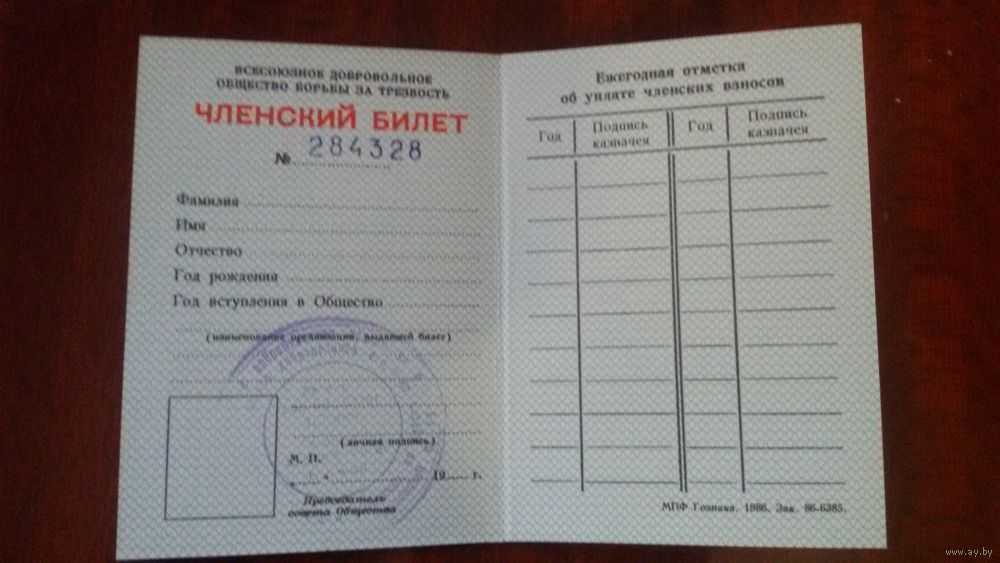 ВСЕСОЮЗНОЕ ДОБРОВОЛЬНОЕ
ОБЩЕСТВО БОРЬБЫ ЗА ТРЕЗВОСТЬ
ЧЛЕНСКИЙ БИЛЕТ
№ 284328
Фамилия
Имя
Отчество
Год рождения
Год вступления в Общество
(наименование организации, выдавшей билет)
(личная подпись)
М. П.
« » 19 г.
Председатель
совета Общества
Ежегодная отметка
об уплате членских взносов
Год Подпись казначея Год Подпись казначея
МПФ Гознака. 1986. Зак. 86-6385.
www.ay.by